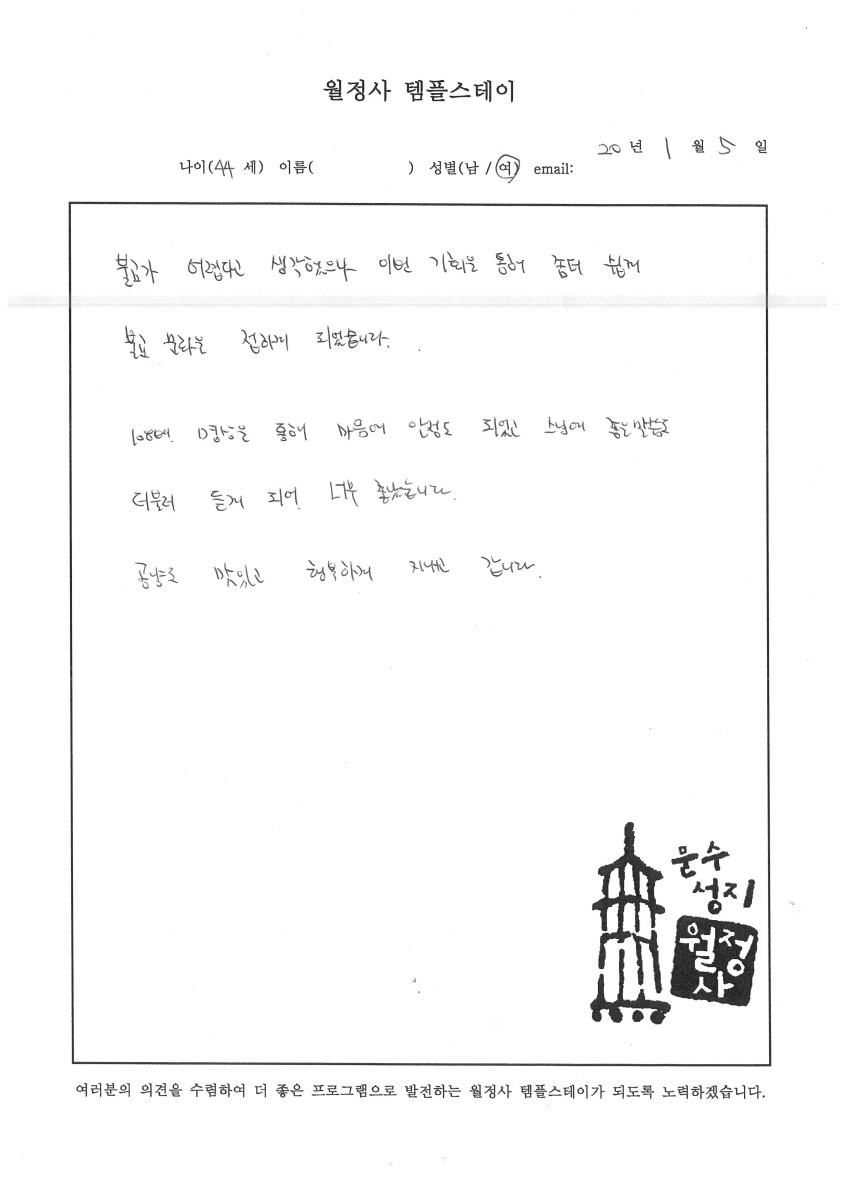 월정사 템플스테이
20 년 1 월 5 일
나이(44 세) 이름( ) 성별(남 / 여) email:
불교가 어렵다고 생각했으나 이번 기회을 통해 좀더 쉽게
불교 문화을 접하게 되었습니다.
108배. 명상을 통해 마음에 안정도 되었고 스님에 좋은말씀도
더불러 듣게 되어. 너무 좋았습니다.
공양도 맛있고 행복하게 지내고 갑니다.
문수
성지
월정
사
여러분의 의견을 수렴하여 더 좋은 프로그램으로 발전하는 월정사 템플스테이가 되도록 노력하겠습니다.